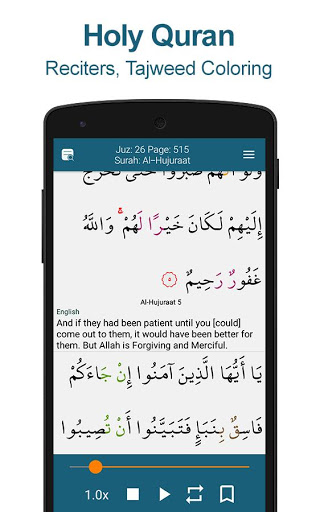 Holy Quran
Reciters, Tajweed Coloring
Juz: 26 Page: 515
Surah: Al-Hujuraat
وَلَوْ أَنَّهُمْ صَبَرُوا حَتَّىٰ تَخْرُجَ
إِلَيْهِمْ لَكَانَ خَيْرًا لَهُمْ ۚ وَاللَّهُ
غَفُورٌ رَحِيمٌ ۝٥
Al-Hujuraat 5
English
And if they had been patient until you [could]
come out to them, it would have been better for
them. But Allah is Forgiving and Merciful.
يَا أَيُّهَا الَّذِينَ آمَنُوا إِنْ جَاءَكُمْ
فَاسِقٌ بِنَبَإٍ فَتَبَيَّنُوا أَنْ تُصِيبُوا
1.0x